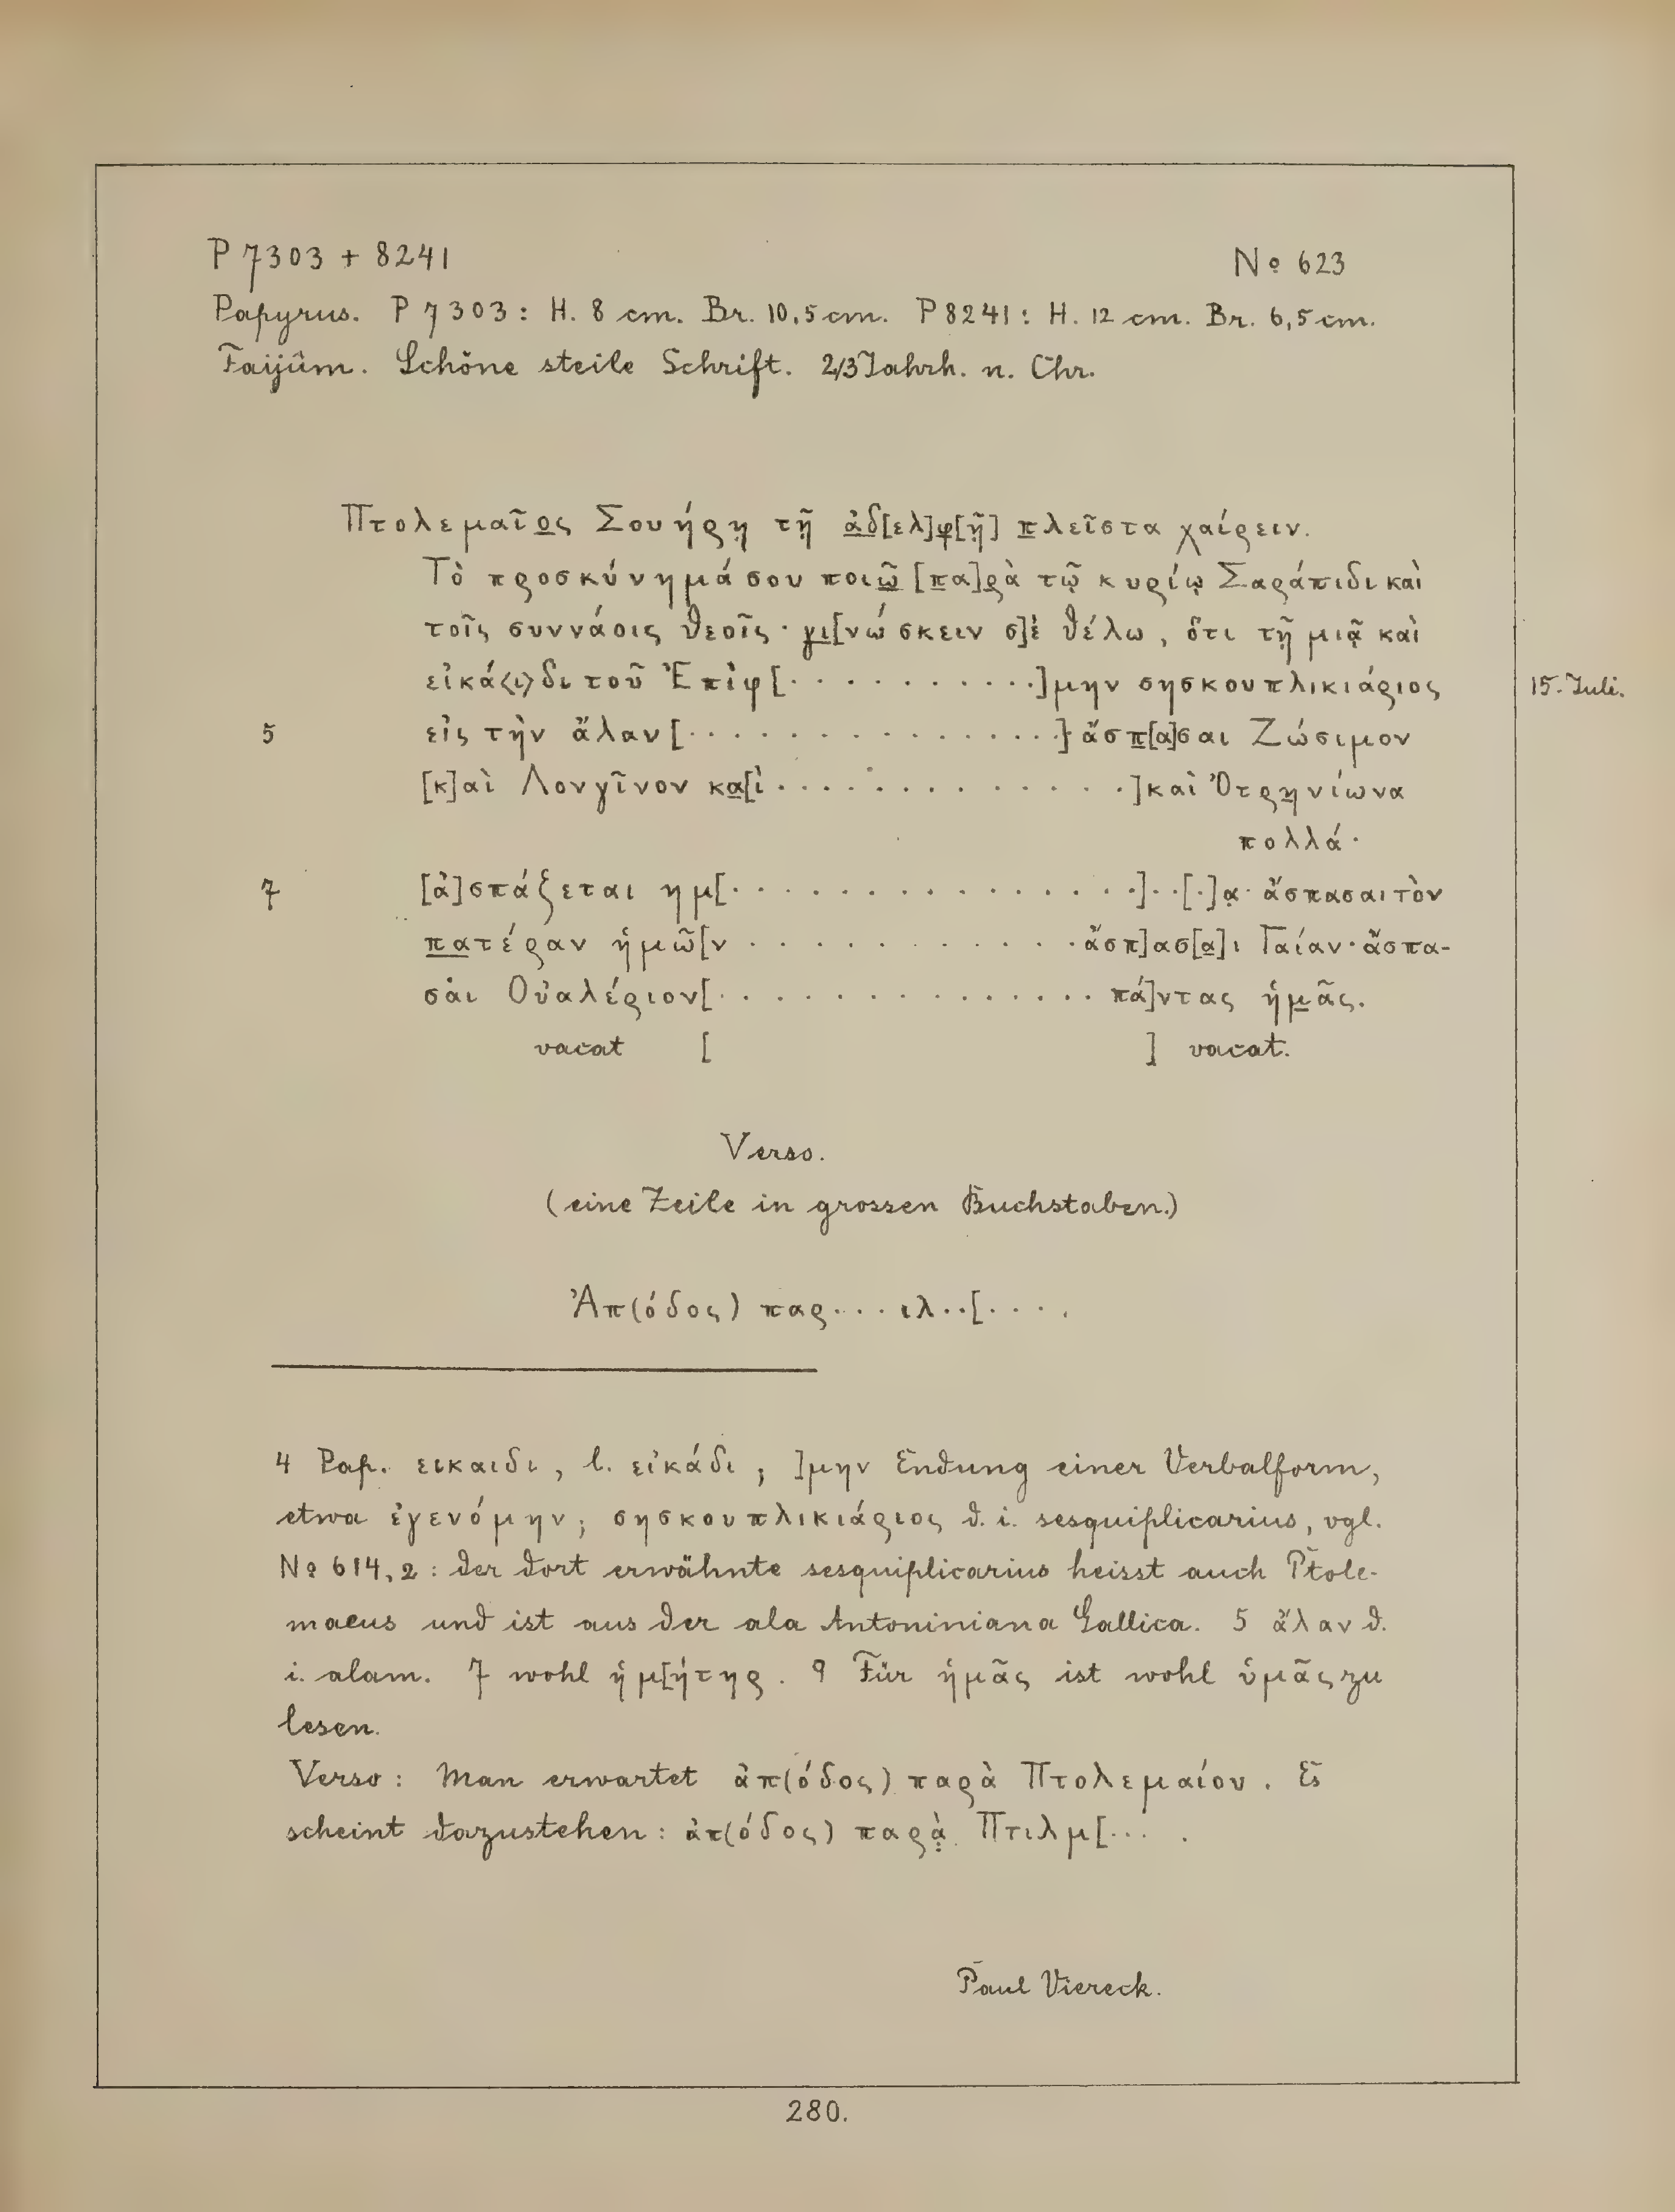 P 7303 + 8241 № 623
Papyrus. P 7303: H. 8 cm. Br. 10,5 cm. P 8241: H. 12 cm. Br. 6,5 cm.
Faijûm. Schöne steile Schrift. 2/3 Jahrh. n. Chr.
Πτολεμαῖο̲ς Σουήρῃ τῇ ἀ̲δ̲[ελ]φ̲[ῇ] π̲λεῖστα χαίρειν.
Τὸ προσκύνημά σου ποιῶ̲ [π̲α]ρ̲ὰ τῷ κυρίῳ Σαράπιδι καὶ
τοῖς συννάοις θεοῖς · γ̲ι̲[νώσκειν σ]ὲ θέλω, ὅτι τῇ μιᾷ καὶ
εἰκά⟨ι⟩δι τοῦ Ἐπὶφ [· · · · · · · · · · ·]μην σησκουπλικιάριος 15. Juli.
5 εἰς τὴν ἄλαν [· · · · · · · · · · · · · · · ·] ἄσπ̲[α]σαι Ζώσιμον
[κ]αὶ Λονγῖνον κα̲[ὶ · · · · · · · · · · · · · ·] καὶ Ὀτρη̲νίωνα
πολλά ·
7 [ἀ]σπάζεται ημ[· · · · · · · · · · · · · · · ·]··[·]α̣· ἄσπασαι τὸν
π̲α̲τέραν ἡμῶ[ν · · · · · · · · · · · · · ἄσπ]ασ[α̲]ι Γαίαν · ἄσπα-
σαι Οὐαλέριον[· · · · · · · · · · · · · · · πά]ντας ἡμ̲ᾶς.
vacat [ ] vacat.
Verso.
(eine Zeile in grossen Buchstaben.)
Ἀπ(όδος) παρ····ιλ··[· · · ·
4 Pap. εικαιδι, l. εἰκάδι; ]μην Endung einer Verbalform,
etwa ἐγενόμην; σησκουπλικιάριος d. i. sesquiplicarius, vgl.
№ 614,2: der dort erwähnte sesquiplicarius heisst auch Ptole-
maeus und ist aus der ala Antoniniana Gallica. 5 ἄλαν d.
i. alam. 7 wohl ἡ μ[ήτηρ. 9 Für ἡμᾶς ist wohl ὑμᾶς zu
lesen.
Verso: Man erwartet ἀπ(όδος) παρὰ Πτολεμαίου. Es
scheint dazustehen: ἀπ(όδος) παρὰ̣ Πτιλμ[··· .
Paul Viereck.
280.